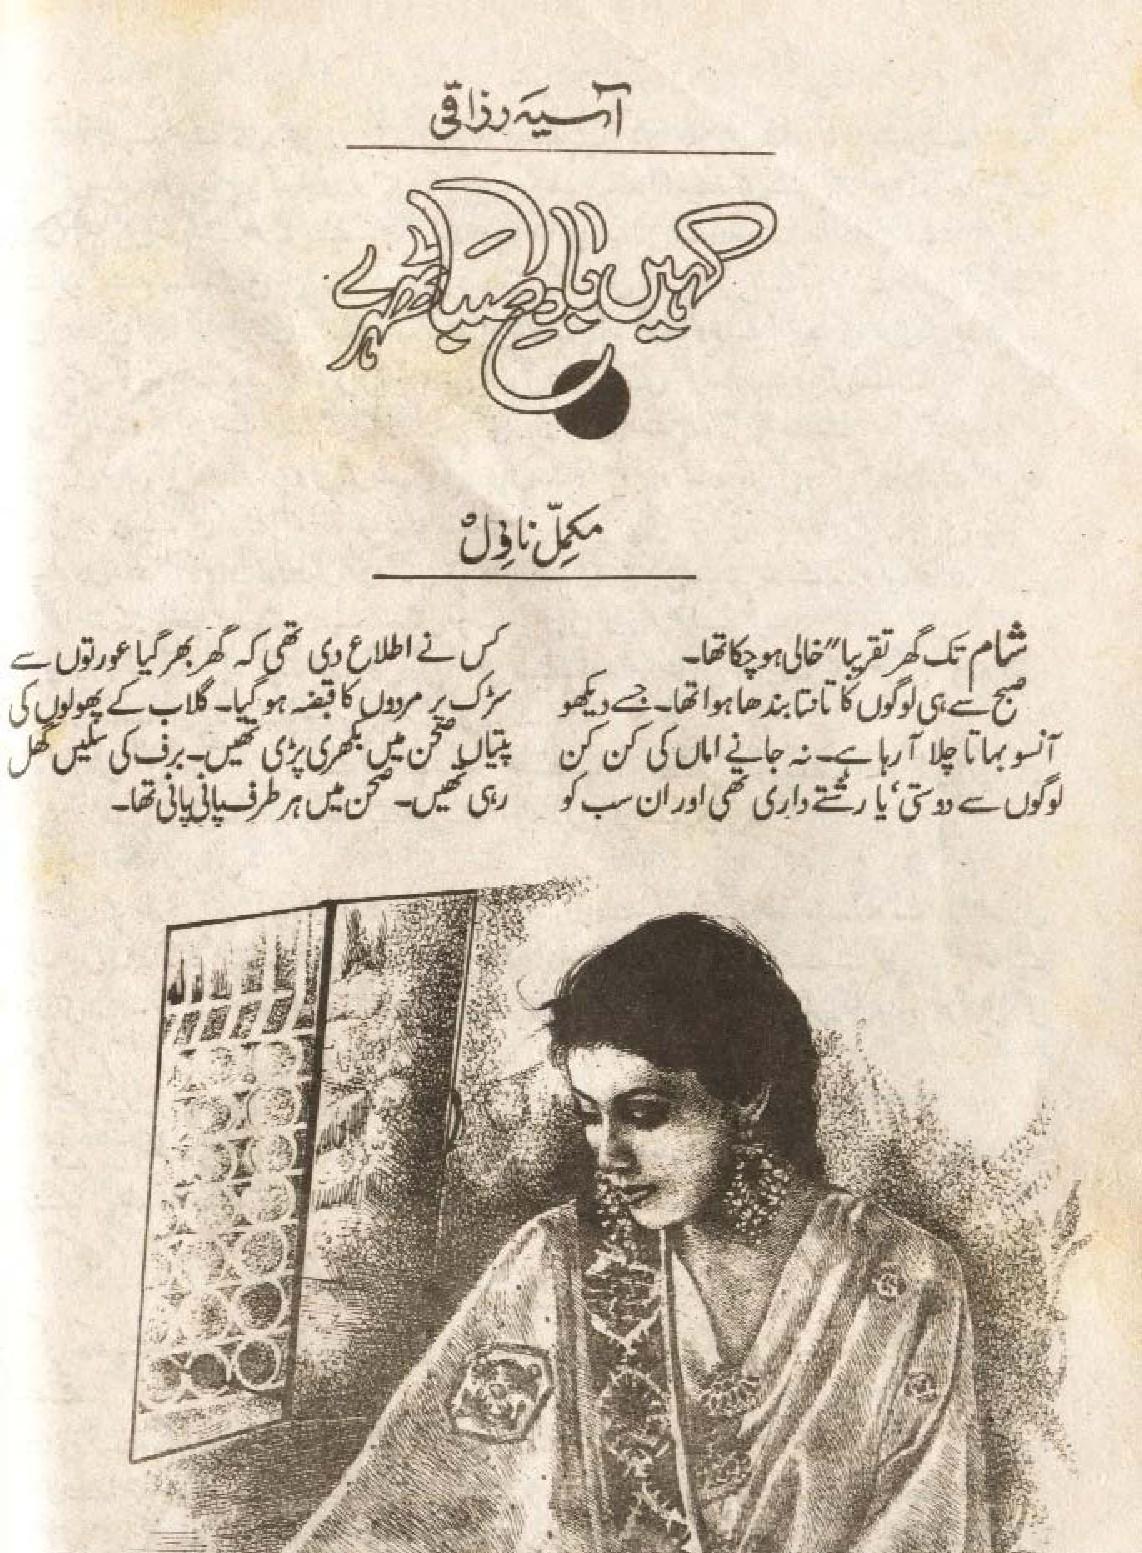 آسیہ رزاقی
کہیں بادِ صبا ٹھہرے
مکمل ناول
شام تک گھر تقریبا" خالی ہو چکا تھا۔
صبح سے ہی لوگوں کا تانتا بندھا ہوا تھا۔ جسے دیکھو
آنسو بہاتا چلا آ رہا ہے۔ نہ جانے اماں کی کن کن
لوگوں سے دوستی' یا رشتے داری تھی اور ان سب کو
کس نے اطلاع دی تھی کہ گھر بھر گیا عورتوں سے
سڑک پر مردوں کا قبضہ ہو گیا۔ گلاب کے پھولوں کی
پتیاں صحن میں بکھری پڑی تھیں۔ برف کی سلیں گھل
رہی تھیں۔ صحن میں ہر طرف پانی پانی تھا۔